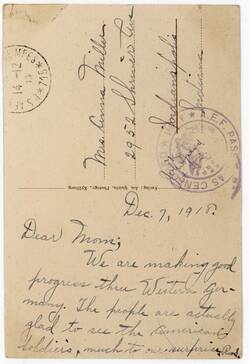 Mrs. Anna Miller
2952 Shriver Ave
Indianapolis
Indiana
14-12
*7 1 8*
A.E.F. PAS
AS CEN
Dec. 7, 1918.
Dear Mom;
We are making good
progress thru Western Ger-
many. The people are actually
glad to see the American
soldiers, much to our surprise